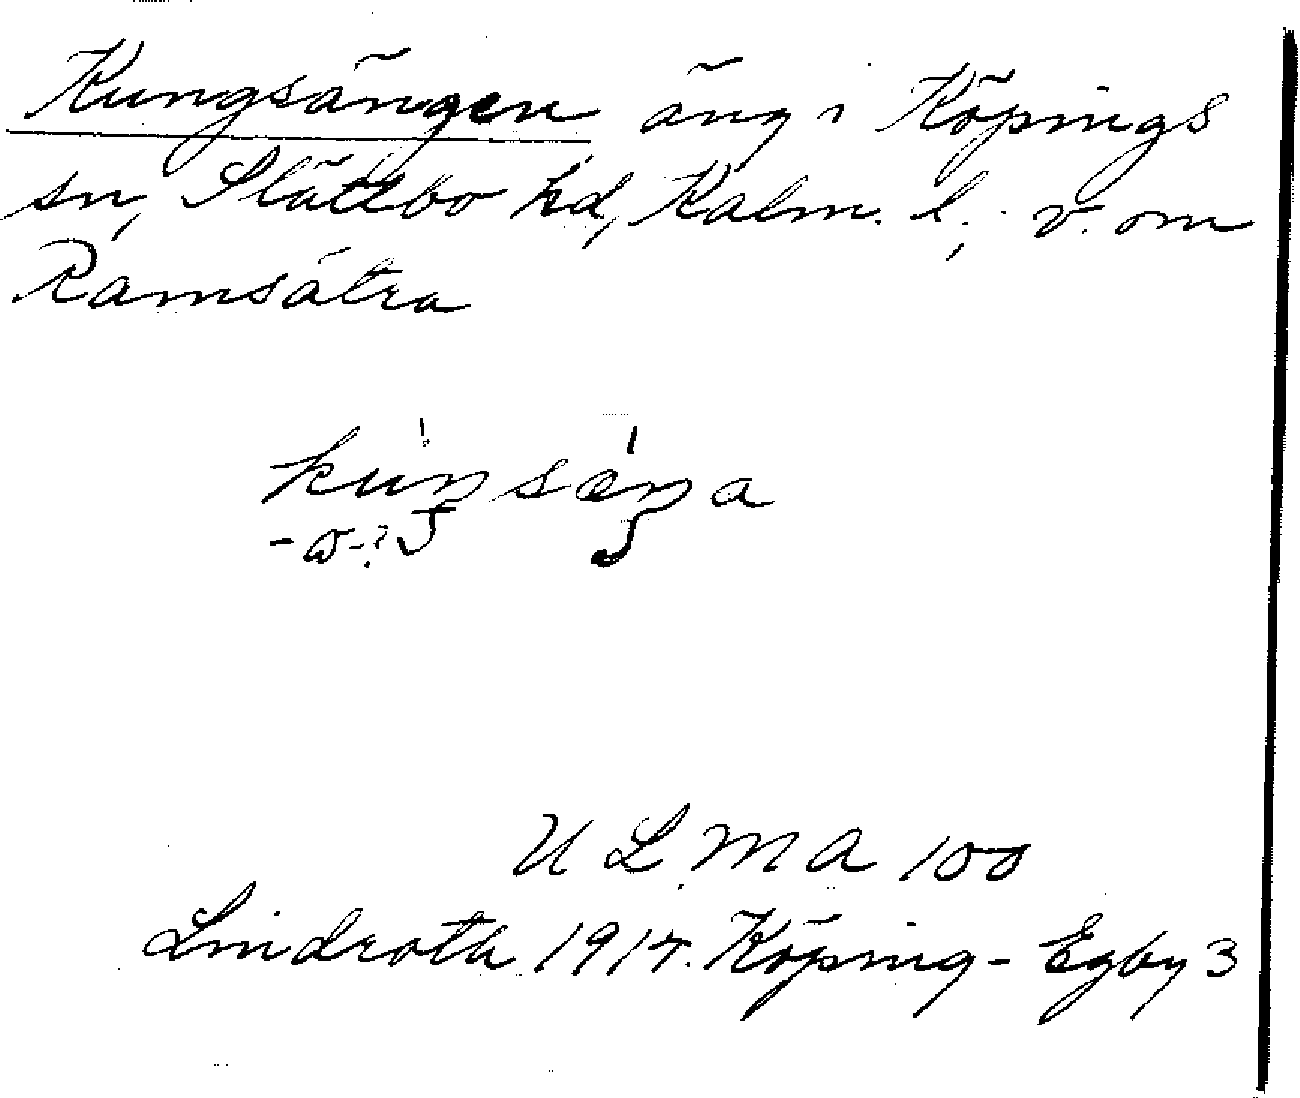 Kungsängen äng i Köpings
sn, Slättbo hd, Kalm. l.; v. om
Ramsätra
U L M A 100
Lindroth 1914. Köping - Egby 3